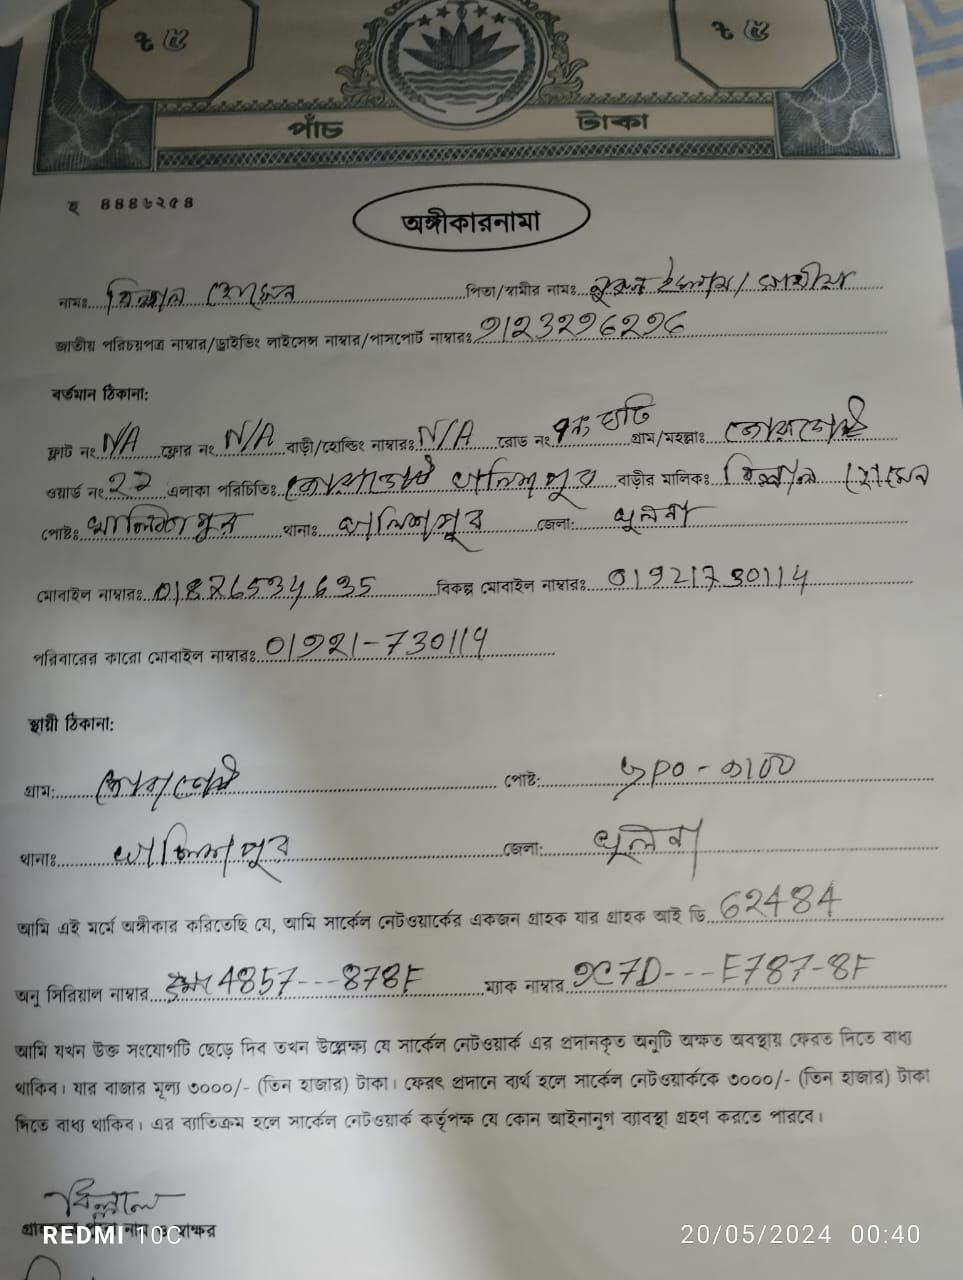 ৳ ৫ ৳ ৫
পাঁচ টাকা
হ ৪৪৪৬২৫৪
অঙ্গীকারনামা
নামঃ বিল্লাল হোসেন পিতা/স্বামীর নামঃ নুরুল ইসলাম/
জাতীয় পরিচয়পত্র নাম্বার/ড্রাইভিং লাইসেন্স নাম্বার/পাসপোর্ট নাম্বারঃ 9123296296
বর্তমান ঠিকানা:
ফ্লাট নংঃ N/A ফ্লোর নং N/A বাড়ী/হোল্ডিং নাম্বারঃ N/A রোড নং ঘাট গ্রাম/মহল্লাঃ
ওয়ার্ড নংঃ এলাকা পরিচিতিঃ খালিশপুর বাড়ীর মালিকঃ বিল্লাল হোসেন
পোষ্টঃ খালিশপুর থানাঃ খালিশপুর জেলা: খুলনা
মোবাইল নাম্বারঃ বিকল্প মোবাইল নাম্বারঃ 01921730114
পরিবারের কারো মোবাইল নাম্বারঃ 01921-730114
স্থায়ী ঠিকানা:
গ্রাম: পোষ্ট:
থানাঃ খালিশপুর জেলা: খুলনা
আমি এই মর্মে অঙ্গীকার করিতেছি যে, আমি সার্কেল নেটওয়ার্কের একজন গ্রাহক যার গ্রাহক আই ডি 62484
অনু সিরিয়াল নাম্বার 4857---878F ম্যাক নাম্বার 9C7D---E787-8F
আমি যখন উক্ত সংযোগটি ছেড়ে দিব তখন উল্লেক্ষ্য যে সার্কেল নেটওয়ার্ক এর প্রদানকৃত অনুটি অক্ষত অবস্থায় ফেরত দিতে বাধ্য
থাকিব। যার বাজার মূল্য ৩০০০/- (তিন হাজার) টাকা। ফেরৎ প্রদানে ব্যর্থ হলে সার্কেল নেটওয়ার্ককে ৩০০০/- (তিন হাজার) টাকা
দিতে বাধ্য থাকিব। এর ব্যাতিক্রম হলে সার্কেল নেটওয়ার্ক কর্তৃপক্ষ যে কোন আইনানুগ ব্যাবস্থা গ্রহণ করতে পারবে।
বিল্লাল
REDMI 10C 20/05/2024 00:40